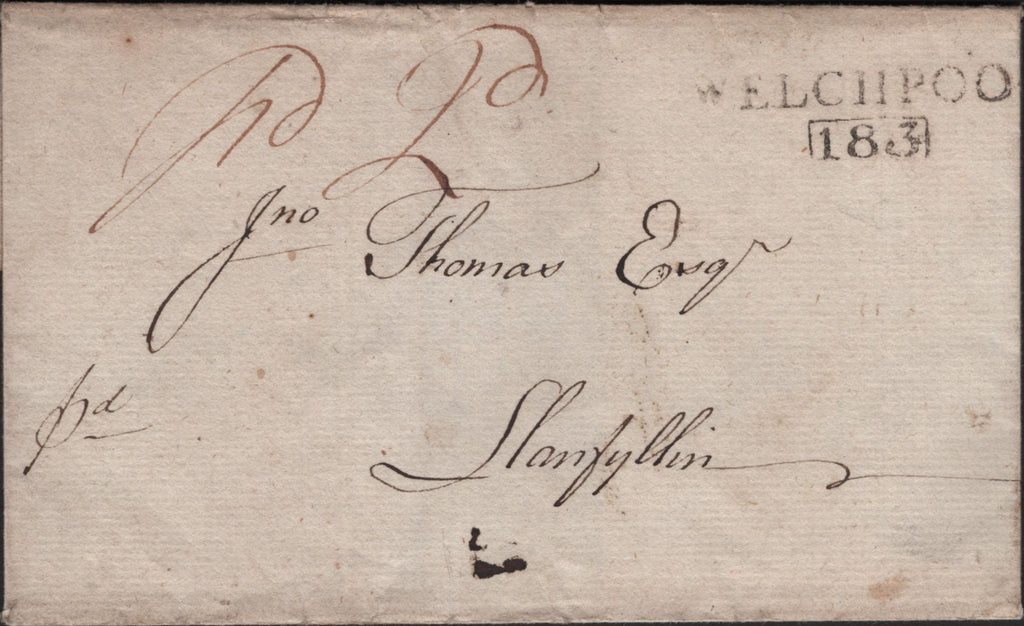 pd 2d
WELCHPOO
183
Jno Thomas Esqr
pd
Llanfyllin